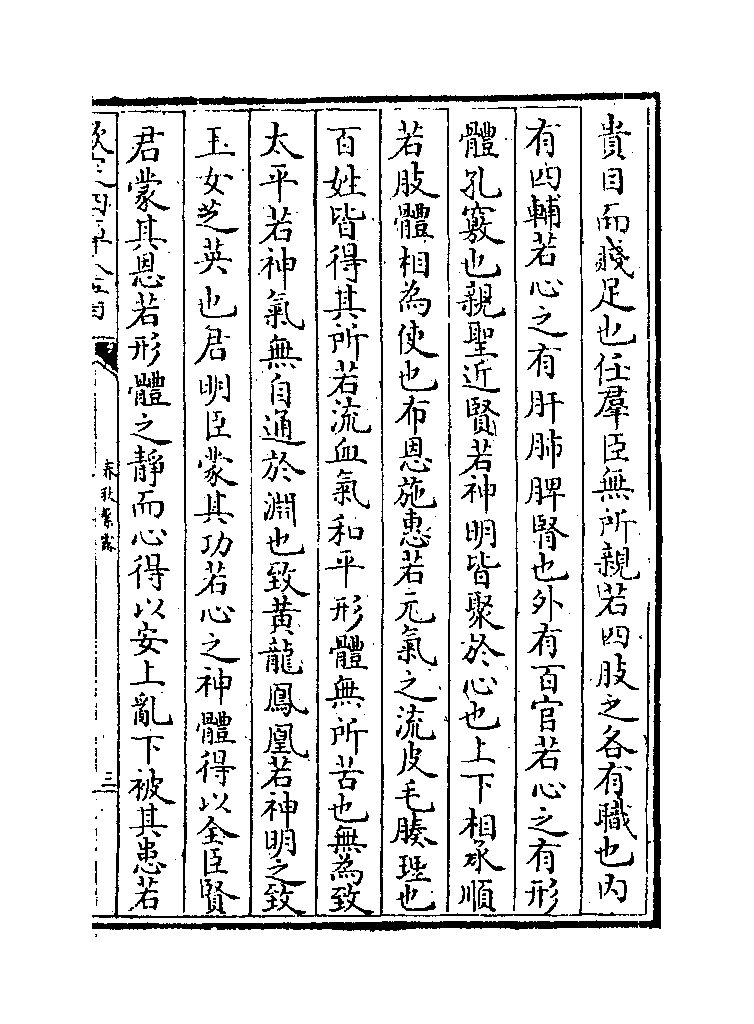 貴目而賤足也任羣臣無所親若四肢之各有職也内
有四輔若心之有肝肺脾腎也外有百官若心之有形
體孔竅也親聖近賢若神明皆聚於心也上下相承順
若肢體相為使也布恩施惠若元氣之流皮毛腠理也
百姓皆得其所若流血氣和平形體無所苦也無為致
太平若神氣無自通於淵也致黄龍鳳凰若神明之致
玉女芝英也君明臣蒙其功若心之神體得以全臣賢
君蒙其恩若形體之靜而心得以安上亂下被其患若
欽定四庫全書
春秋繁露
三